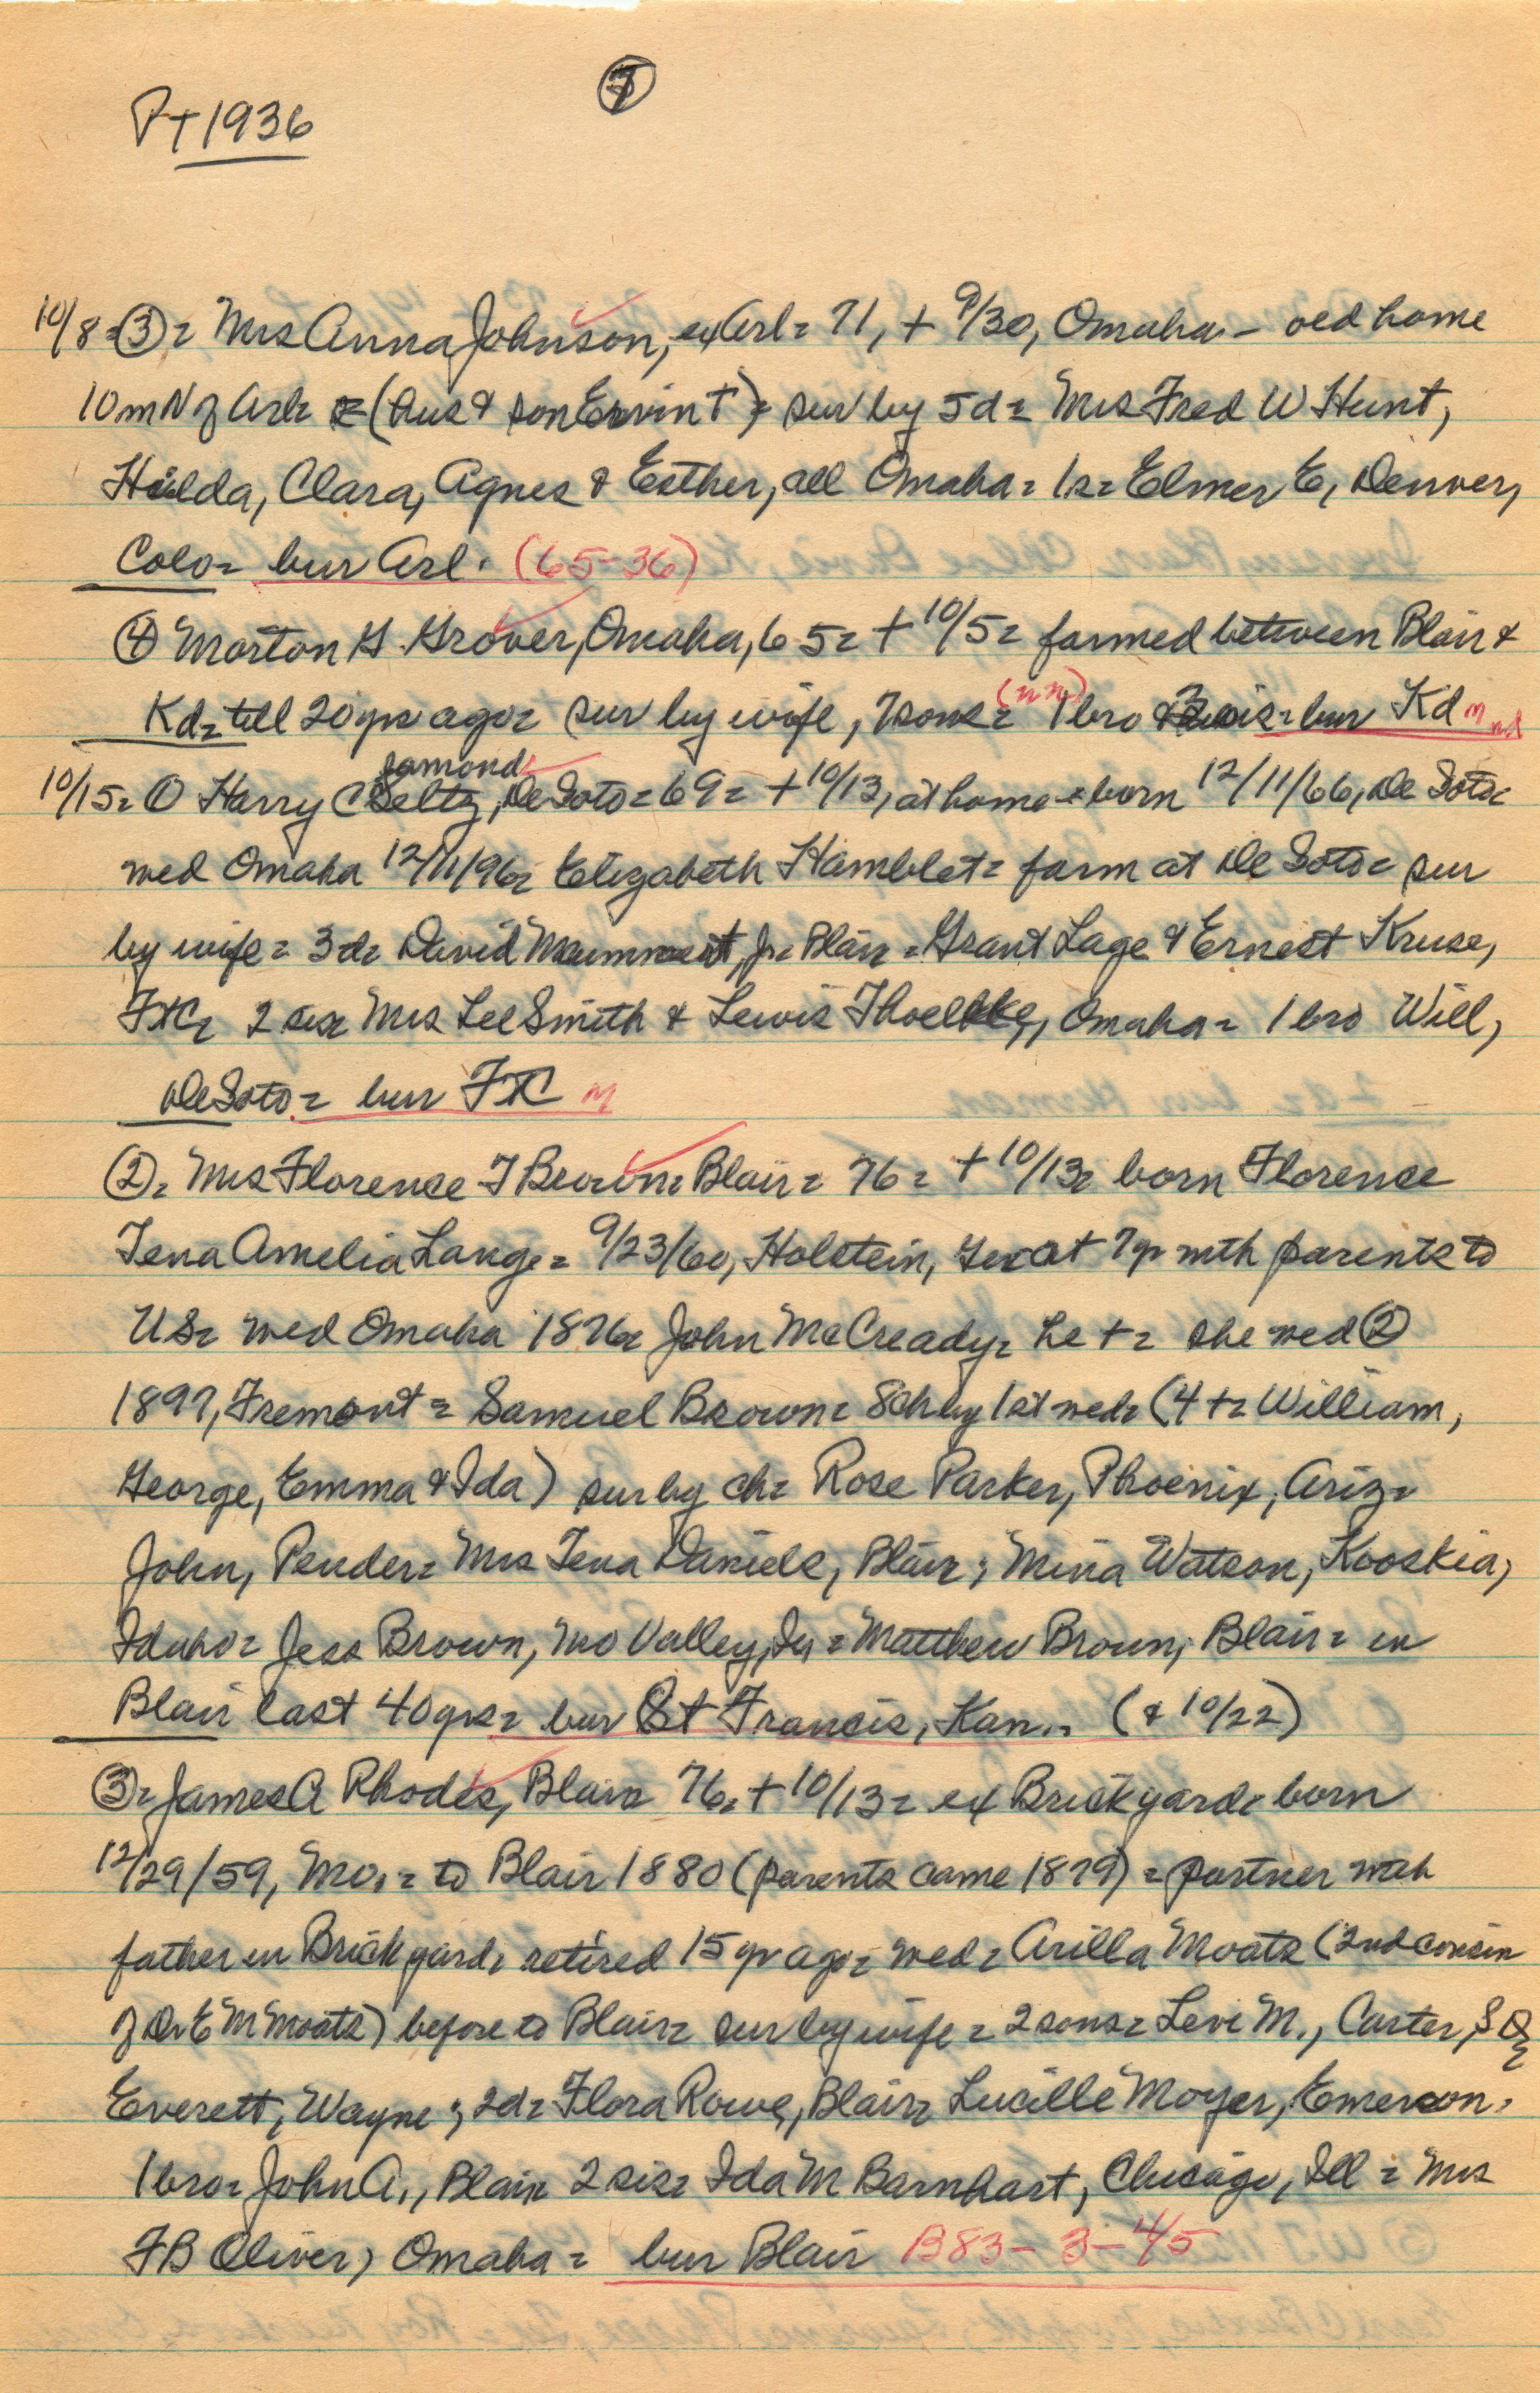 7
Pt 1936
10/8 = ③ = Mrs Anna Johnson, ex Arl = 71, + 9/30, Omaha - old home
10 m N of Arl = (hus & son Ervin +) = sur by 5 d = Mrs Fred W Hunt,
Hulda, Clara, Agnes & Esther, all Omaha = 1 s = Elmer E, Denver,
Colo = bur Arl. (65-36)
④ Morton G. Grover, Omaha, 65 = + 10/5 = farmed between Blair &
Kd = till 20 yrs ago = sur by wife, 7 sons = (nn) 1 bro & 2 sis = bur Kd
jamond
10/15 = ① Harry C Seltz, De Soto = 69 = + 10/13, at home = born 12/11/66, De Soto =
wed Omaha 12/11/96 = Elizabeth Hamblet = farm at De Soto = sur
by wife = 3 d = David Mummert, Jr = Blair = Grant Lage & Ernest Kruse,
FtC = 2 sis = Mrs Lee Smith & Lewis Thoelke, Omaha = 1 bro Will,
De Soto = bur FtC M
② = Mrs Florence T Brown = Blair = 76 = + 10/13 = born Florence
Tena Amelia Lange = 9/23/60, Holstein, Ger = at 7 yr with parents to
US = wed Omaha 1876 = John McCready = he + = she wed ②
1897, Fremont = Samuel Brown = 8 ch by 1st wed = (4 + = William,
George, Emma & Ida) sur by ch = Rose Parker, Phoenix, Ariz =
John, Pender = Mrs Tena Daniels, Blair; Mina Watson, Kooskia,
Idaho = Jess Brown, Mo Valley, Ia = Matthew Brown, Blair = in
Blair last 40 yrs = bur St Francis, Kan. = (& 10/22)
③ = James A Rhodes, Blair = 76 = + 10/13 = ex Brickyard = born
12/29/59, Mo. = to Blair 1880 (parents came 1879) = partner with
father in Brickyard = retired 15 yr ago = wed = Arilla Moats (2nd cousin
of Dr E M Moats) before to Blair = sur by wife = 2 sons = Levi M., Carter, SD =
Everett, Wayne; 2 d = Flora Rowe, Blair = Lucille Moyer, Emerson =
1 bro = John A., Blair = 2 sis = Ida M Barnhart, Chicago, Ill = Mrs
FB Oliver, Omaha = bur Blair B83-3-4/5